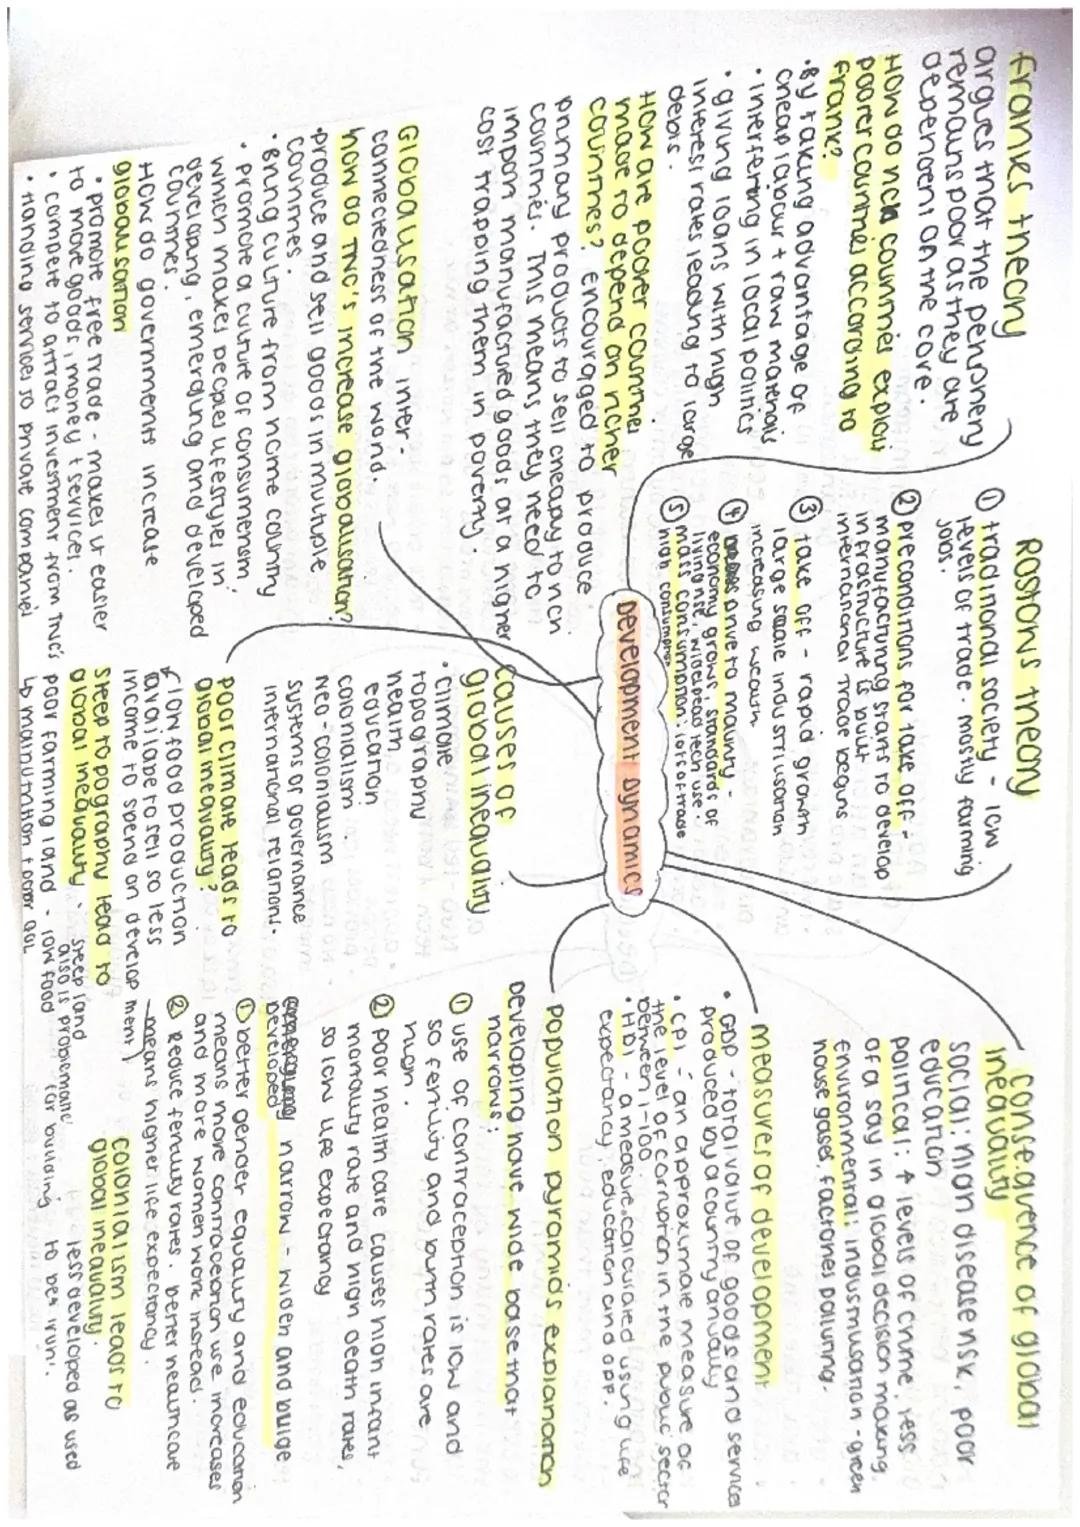 franks theory
argues that the periphery
remains poor as they are
dependent on the core.
How do rich countries exploit
poorer countries according to
frank?
• By taking advantage of
cheap labour + raw materials
• interfering in local politics
• giving loans with high
interest rates leading to large
debts.
How are poorer countries
made to depend on richer
countries? Encouraged to produce
primary products to sell cheapy to rich
countries. This means they need to
import manufactured goods at a higher
cost trapping them in poverty.
Globalisation inter-
connectedness of the world.
how do TNC's increase globalisation?
• produce and sell goods in multiple
countries.
• Bring culture from home country
• promote a culture of consumerism
which makes peoples lifestyles in
developing, emerging and developed
countries.
How do governments increase
globalisation
• promote free trade - makes it easier
to move goods, money + services.
• compete to attract investment from TNC's
• handing services to private companies
Rostows theory
① traditional society - low
levels of trade. mostly farming
jobs.
② preconditions for take off =
manufacturing starts to develop
infrastructure is built
international trade beguns
③ take off - rapid growth
large scale industrialisation
increasing wealth
④ drive to maturity -
economy grows, standards of
living rise, widespread tech use.
⑤ mass consumption: lots of trade
high consumption
Development Dynamics
causes of
global inequality
• climate
topography
health
education
colonialism
neo-colonialism
systems of governance
international relations.
poor climate leads to
global inequality?
low food production
available to sell so less
income to spend on development)
steep topography lead to
global inequality. steep land
also is problematic
for building
poor farming land - low food
↳ malnutrition + poor QOL
consequence of global
inequality
social: high disease risk, poor
education
political: ↑ levels of crime. less
of a say in global decision making
environmental: industrialisation - green
house gases, factories polluting.
measures of development
• GDP - total value of goods and services
produced by a country annually
• CPI - an approximate measure of
the level of corruption in the public sector
between 1-100.
• HDI - a measure calculated using life
expectancy, education and GDP.
population pyramids explanation
Developing have wide base that
narrows:
① use of contraception is low and
so fertility and birth rates are
high.
② poor health care causes high infant
mortality rate and high death rates,
so low life expectancy
Developed narrow - widen and bulge
① better gender equality and education
means more contraception use increases
and more women work instead.
② Reduce fertility rates. better healthcare
means higher life expectancy.
colonialism leads to
global inequality.
less developed as used
to be 'run'.